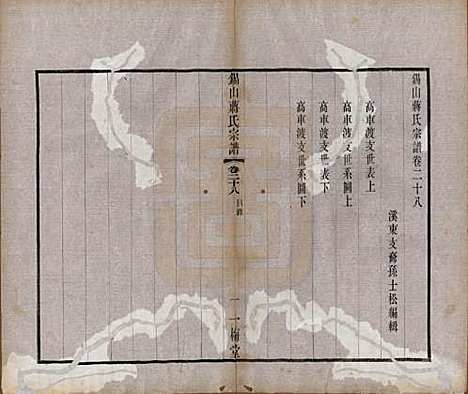 錫山蔣氏宗譜卷二十八
溪東支裔孫士松編輯
高車渡支世表上
高車渡支世系圖上
高車渡支世表下
高車渡支世系圖下
錫山蔣氏宗譜
卷二十八 目錄
一 一梅堂